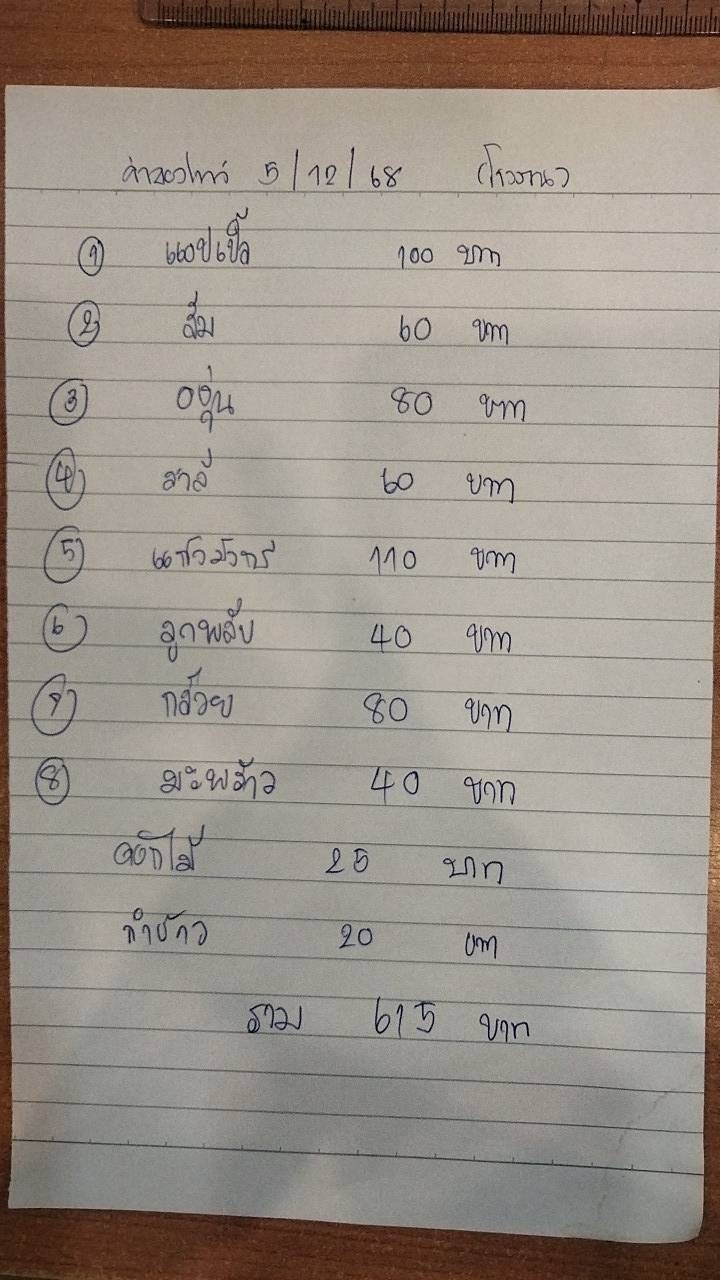 ค่าของไหว้ 5/12/68 (โรงงาน)
① แอปเปิ้ล 100 บาท
② ส้ม 60 บาท
③ องุ่น 80 บาท
④ สาลี่ 60 บาท
⑤ แก้วมังกร 110 บาท
⑥ ลูกพลับ 40 บาท
⑦ กล้วย 80 บาท
⑧ มะพร้าว 40 บาท
ดอกไม้ 25 บาท
20 บาท
รวม 615 บาท